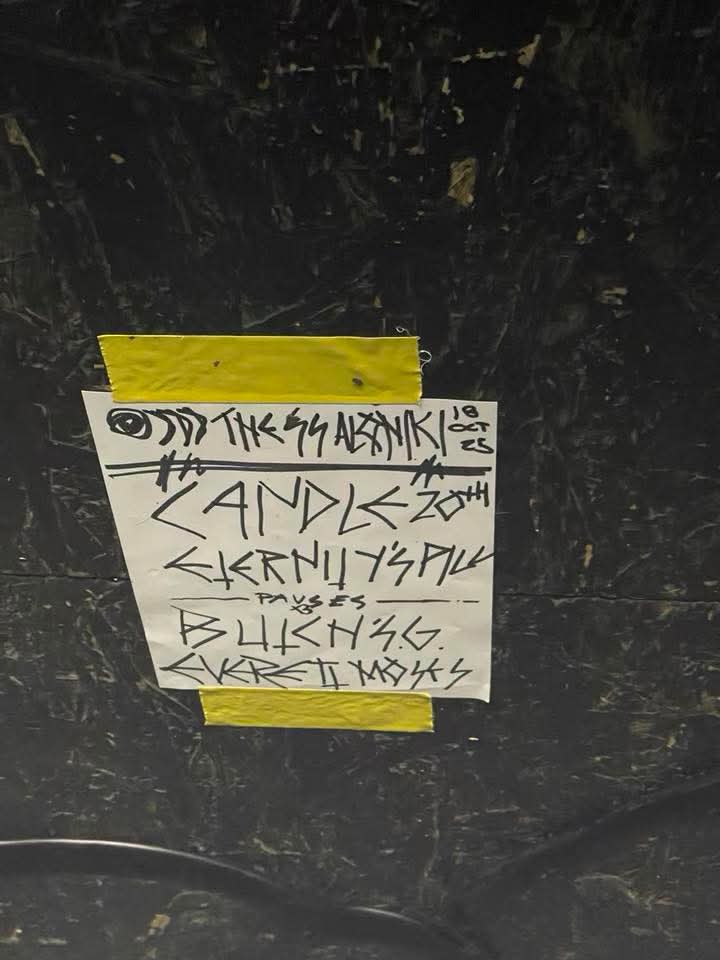 THESSALONIKI 18 OCT 25
CANDLE 20TH
ETERNITY'S PILL
PAUSES
BUTCH'S.G.
EVERETT MOSES